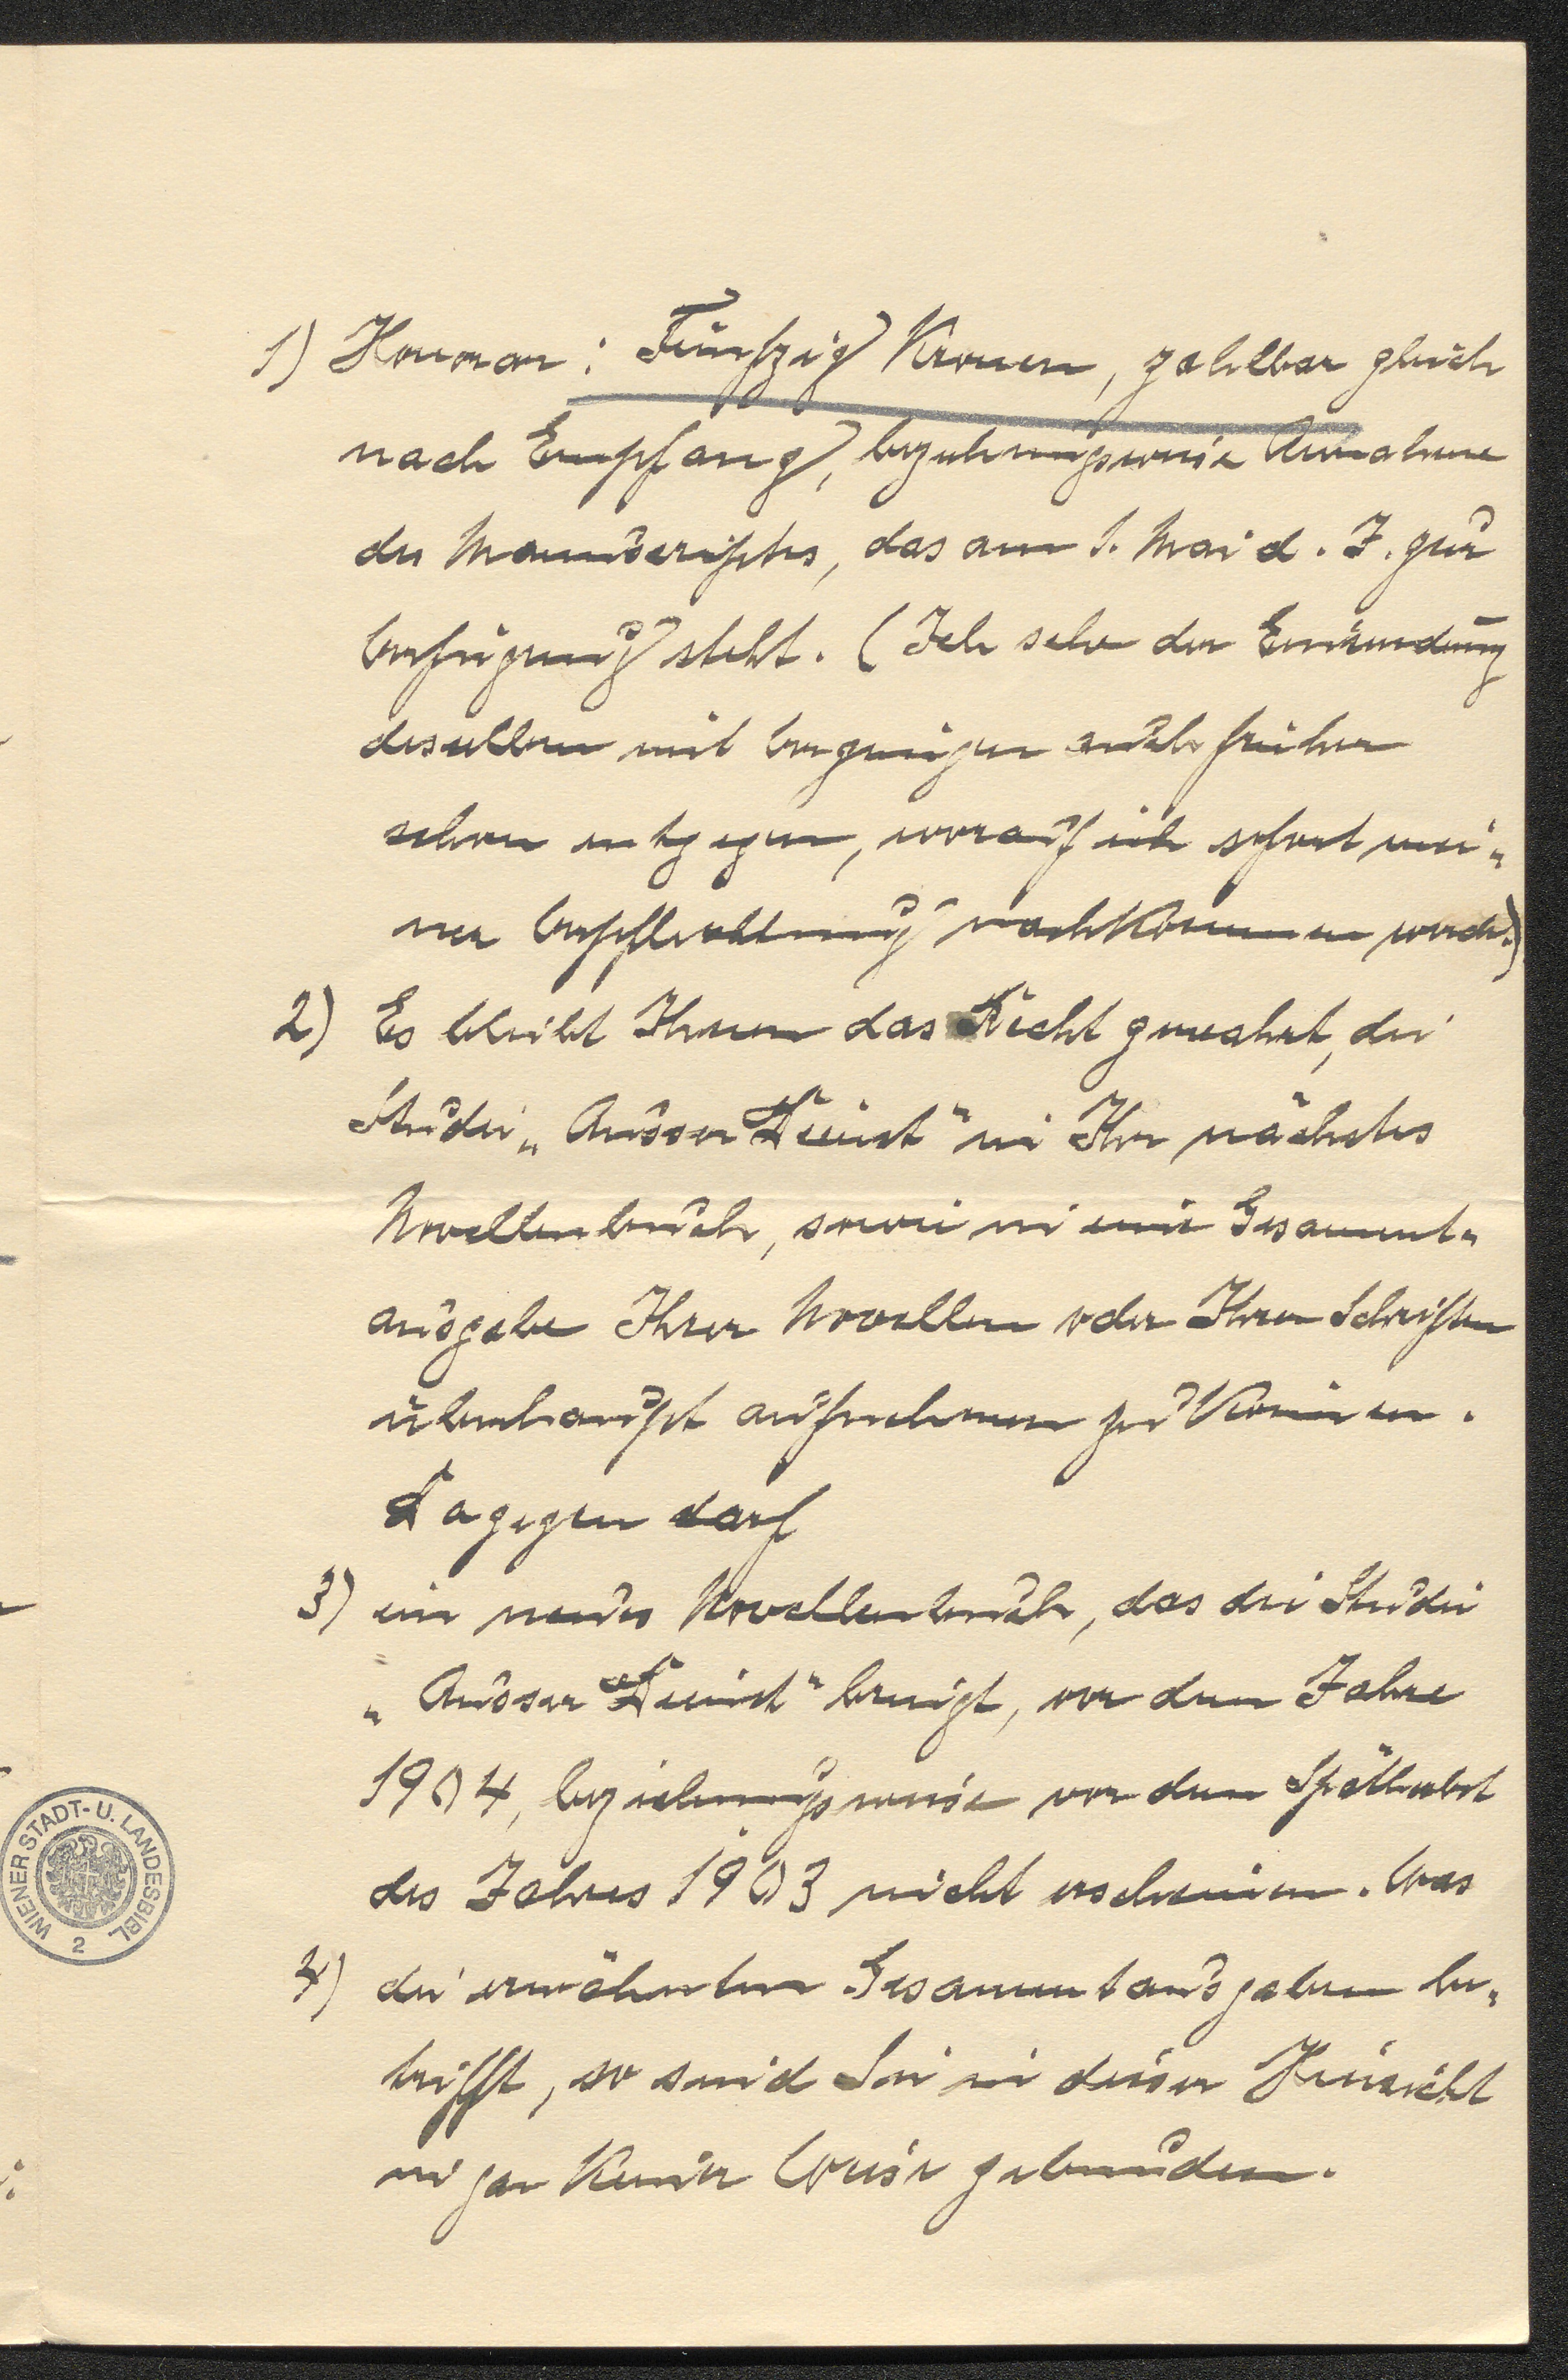 1) Honorar: Fünfzig Kronen, zahlbar gleich
nach Empfang, beziehungsweise Annahme
des Manuscriptes, das am 1. Mai d. J. zur
Verfügung steht. (Ich sehe der Einsendung
desselben mit Vergnügen auch früher
schon entgegen, worauf ich sofort mei„
ner Verpflichtung nachkommen werde.)
2) Es bleibt Ihnen das Recht gewahrt, die
Studie „Ausser Dienst" in Ihr nächstes
Novellenbuch, sowie in eine Gesammt„
ausgabe Ihrer Novellen oder Ihrer Schriften
überhaupt aufnehmen zu können.
Dagegen darf
3) ein neues Novellenbuch, das die Studie
„Ausser Dienst" bringt, vor dem Jahre
1904, beziehungsweise vor dem Spätherbst
des Jahres 1903 nicht erscheinen. Was
4) die erwähnten Gesammtausgaben be„
trifft, so sind Sie in dieser Hinsicht
in gar keiner Weise gebunden.
WIENER STADT- U. LANDESBIBL.
2